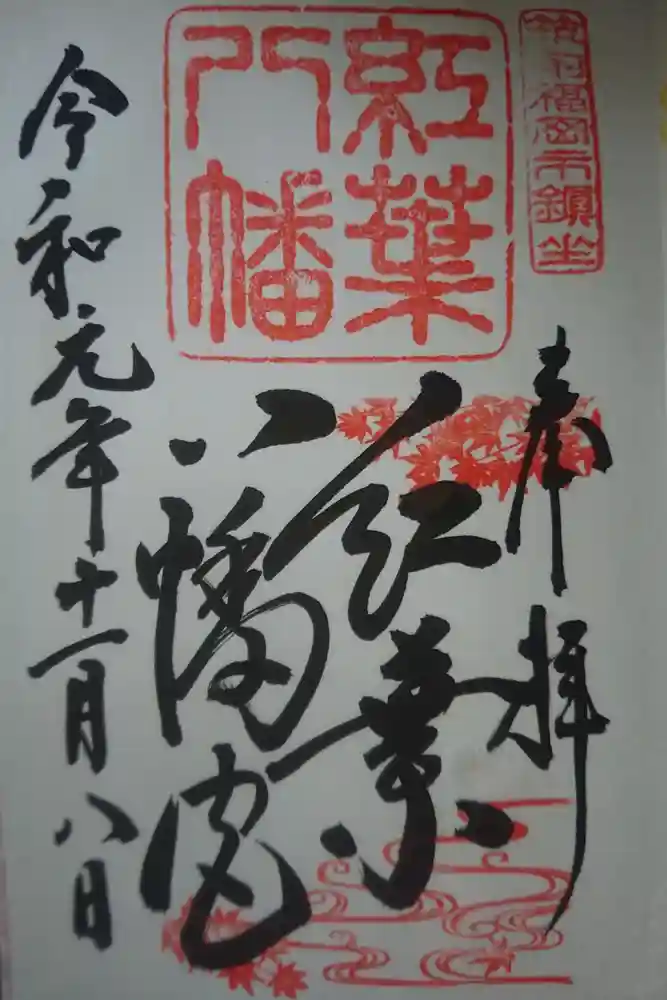 筑前福岡市鎮坐
奉拝
紅葉
八幡
紅葉
八幡宮
令和元年十一月八日